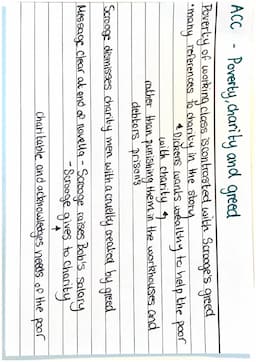 ACC - Poverty, charity and greed
Poverty of working class is contrasted with Scrooge's greed
• many references to charity in the story
↳ Dickens wants wealthy to help the poor
with charity ↰
rather than punishing them in the workhouses and
debtors prisons
Scrooge dismisses charity men with a cruelty created by greed
Message clear at end of novella - Scrooge raises Bob's salary
- Scrooge gives to charity
↑
charitable and acknowledges needs of the poor